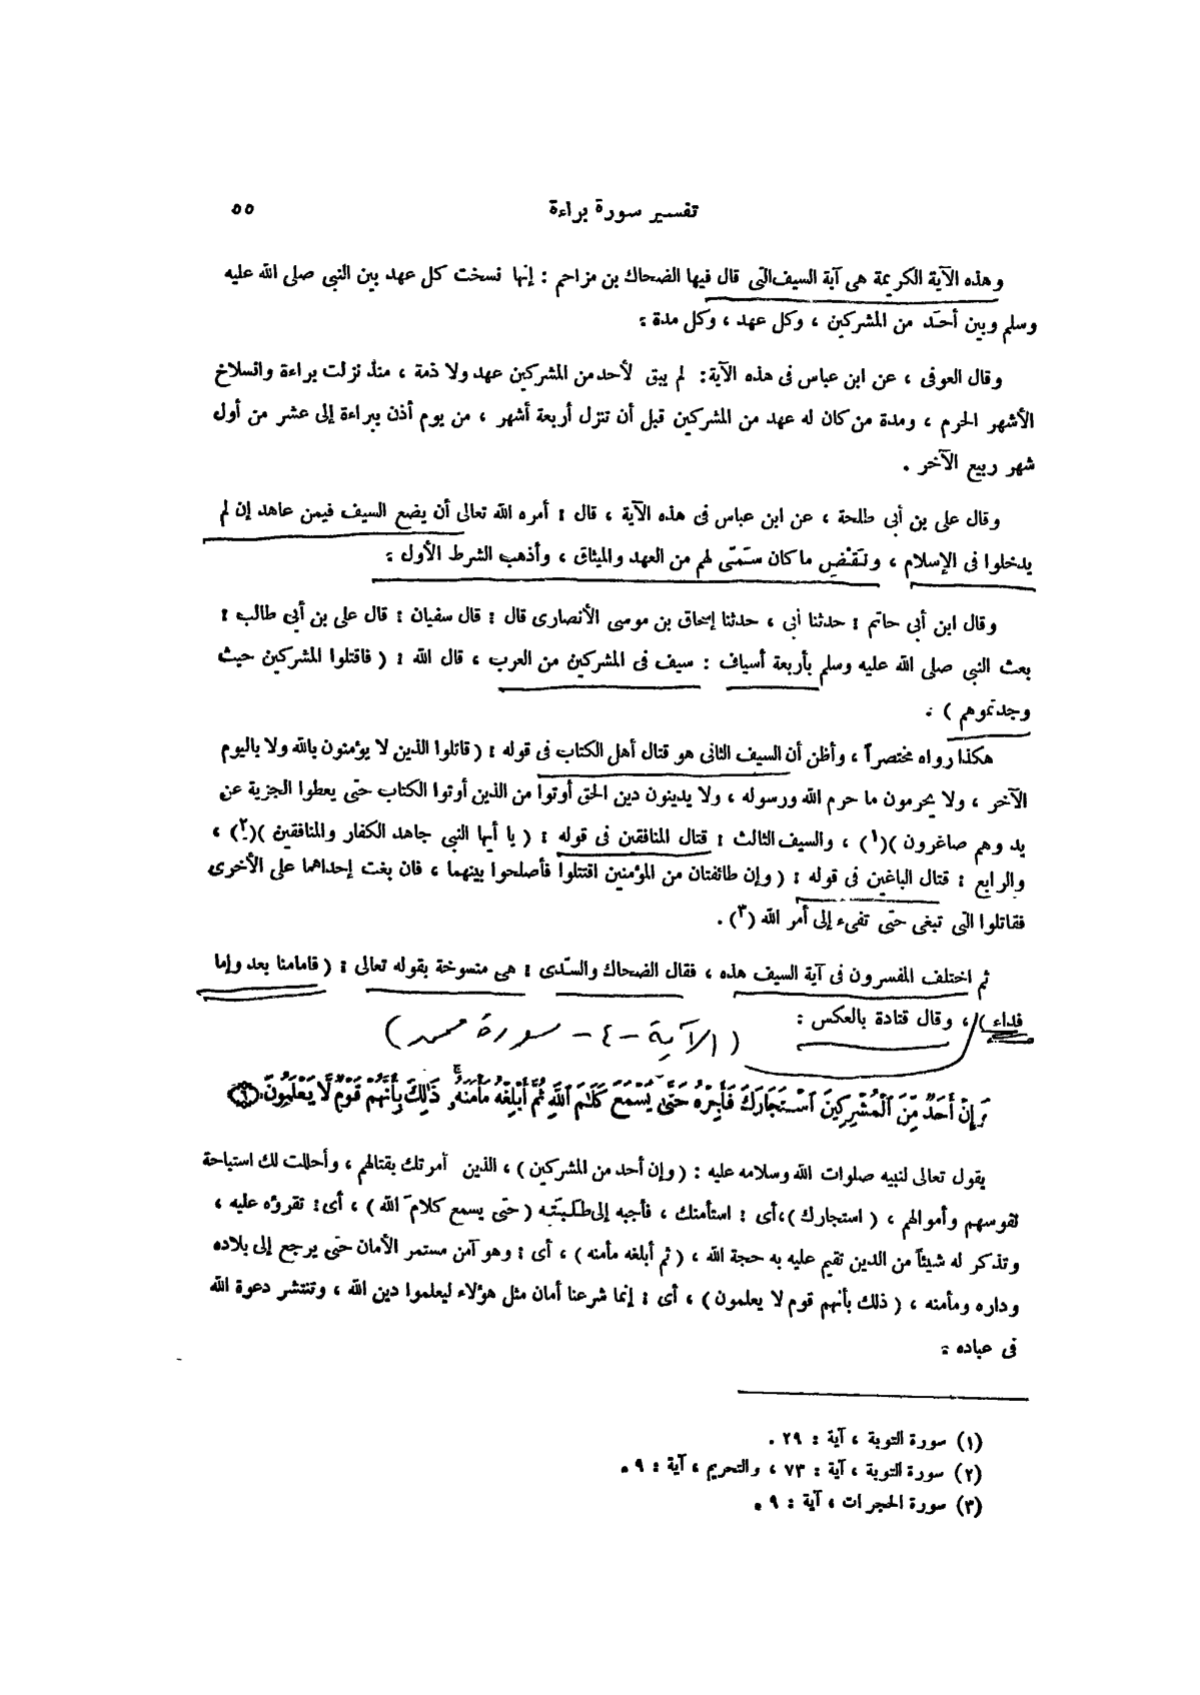 تفسير سورة براءة ٥٥
وهذه الآية الكريمة هى آية السيف التى قال فيها الضحاك بن مزاحم : إنها نسخت كل عهد بين النبى صلى الله عليه
وسلم وبين أحَد من المشركين ، وكل عهد ، وكل مدة :
وقال العوفى ، عن ابن عباس فى هذه الآية : لم يبق لأحد من المشركين عهد ولا ذمة ، منذ نزلت براءة وانسلاخ
الأشهر الحرم ، ومدة من كان له عهد من المشركين قبل أن تنزل أربعة أشهر ، من يوم أذن ببراءة إلى عشر من أول
شهر ربيع الآخر .
وقال على بن أبى طلحة ، عن ابن عباس فى هذه الآية ، قال : أمره الله تعالى أن يضع السيف فيمن عاهد إن لم
يدخلوا فى الإسلام ، ونَقْضِ ما كان سَمّى لهم من العهد والميثاق ، وأذهب الشرط الأول :
وقال ابن أبى حاتم : حدثنا أبى ، حدثنا إسحاق بن موسى الأنصارى قال : قال سفيان : قال على بن أبى طالب :
بعث النبى صلى الله عليه وسلم بأربعة أسياف : سيف فى المشركين من العرب ، قال الله : ( فاقتلوا المشركين حيث
وجدتموهم ) .
هكذا رواه مختصراً ، وأظن أن السيف الثانى هو قتال أهل الكتاب فى قوله : ( قاتلوا الذين لا يؤمنون بالله ولا باليوم
الآخر ، ولا يحرمون ما حرم الله ورسوله ، ولا يدينون دين الحق أوتوا من الذين أوتوا الكتاب حتى يعطوا الجزية عن
يد وهم صاغرون )(١) ، والسيف الثالث : قتال المنافقين فى قوله : ( يا أيها النبى جاهد الكفار والمنافقين )(٢) ،
والرابع : قتال الباغين فى قوله : ( وإن طائفتان من المؤمنين اقتتلوا فأصلحوا بينهما ، فان بغت إحداهما على الأخرى
فقاتلوا التى تبغى حتى تفىء إلى أمر الله (٣) .
ثم اختلف المفسرون فى آية السيف هذه ، فقال الضحاك والسّدى : هى منسوخة بقوله تعالى : ( فامامنا بعد وإما
فداء ) ، وقال قتادة بالعكس :
( الآية - ٤ - سورة محمد )
وَإِنْ أَحَدٌ مِّنَ ٱلْمُشْرِكِينَ ٱسْتَجَارَكَ فَأَجِرْهُ حَتَّىٰ يَسْمَعَ كَلَٰمَ ٱللَّهِ ثُمَّ أَبْلِغْهُ مَأْمَنَهُۥ ۚ ذَٰلِكَ بِأَنَّهُمْ قَوْمٌ لَّا يَعْلَمُونَ (٦)
يقول تعالى لنبيه صلوات الله وسلامه عليه : ( وإن أحد من المشركين ) ، الذين آمرتك بقتالهم ، وأحللت لك استباحة
نفوسهم وأموالهم ، ( استجارك )،أى : استأمنك ، فأجبه إلى طَلِبَتِه ( حتى يسمع كلامَ الله ) ، أى : تقرؤه عليه ،
وتذكر له شيئاً من الدين تقيم عليه به حجة الله ، ( ثم أبلغه مأمنه ) ، أى : وهو آمن مستمر الأمان حتى يرجع إلى بلاده
وداره ومأمنه ، ( ذلك بأنهم قوم لا يعلمون ) ، أى : إنما شرعنا أمان مثل هؤلاء ليعلموا دين الله ، وتنتشر دعوة الله
فى عباده :
(١) سورة التوبة ، آية : ٢٩ .
(٢) سورة التوبة ، آية : ٧٣ ، والتحريم ، آية : ٩ .
(٣) سورة الحجرات ، آية : ٩ .